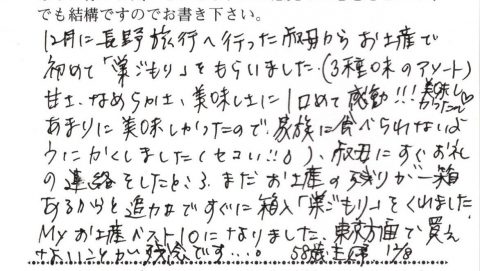 でも結構ですのでお書き下さい。
12月に長野旅行へ行った叔母からお土産で
初めて「巣ごもり」をもらいました。(3種味のアソート)
甘さ、なめらかさ、美味しさに1口めで感動!!!美味しかったです♡
あまりに美味しかったので、家族に食べられないよ
うにかくしました(セコい!!)、叔母にすぐお礼
の連絡をしたところ、まだお土産の残りが一箱
あるからと追加ですぐに箱入「巣ごもり」をくれました
Myお土産ベスト10になりました、東京方面で買え
ないことが残念です…。 58歳主婦 12/8